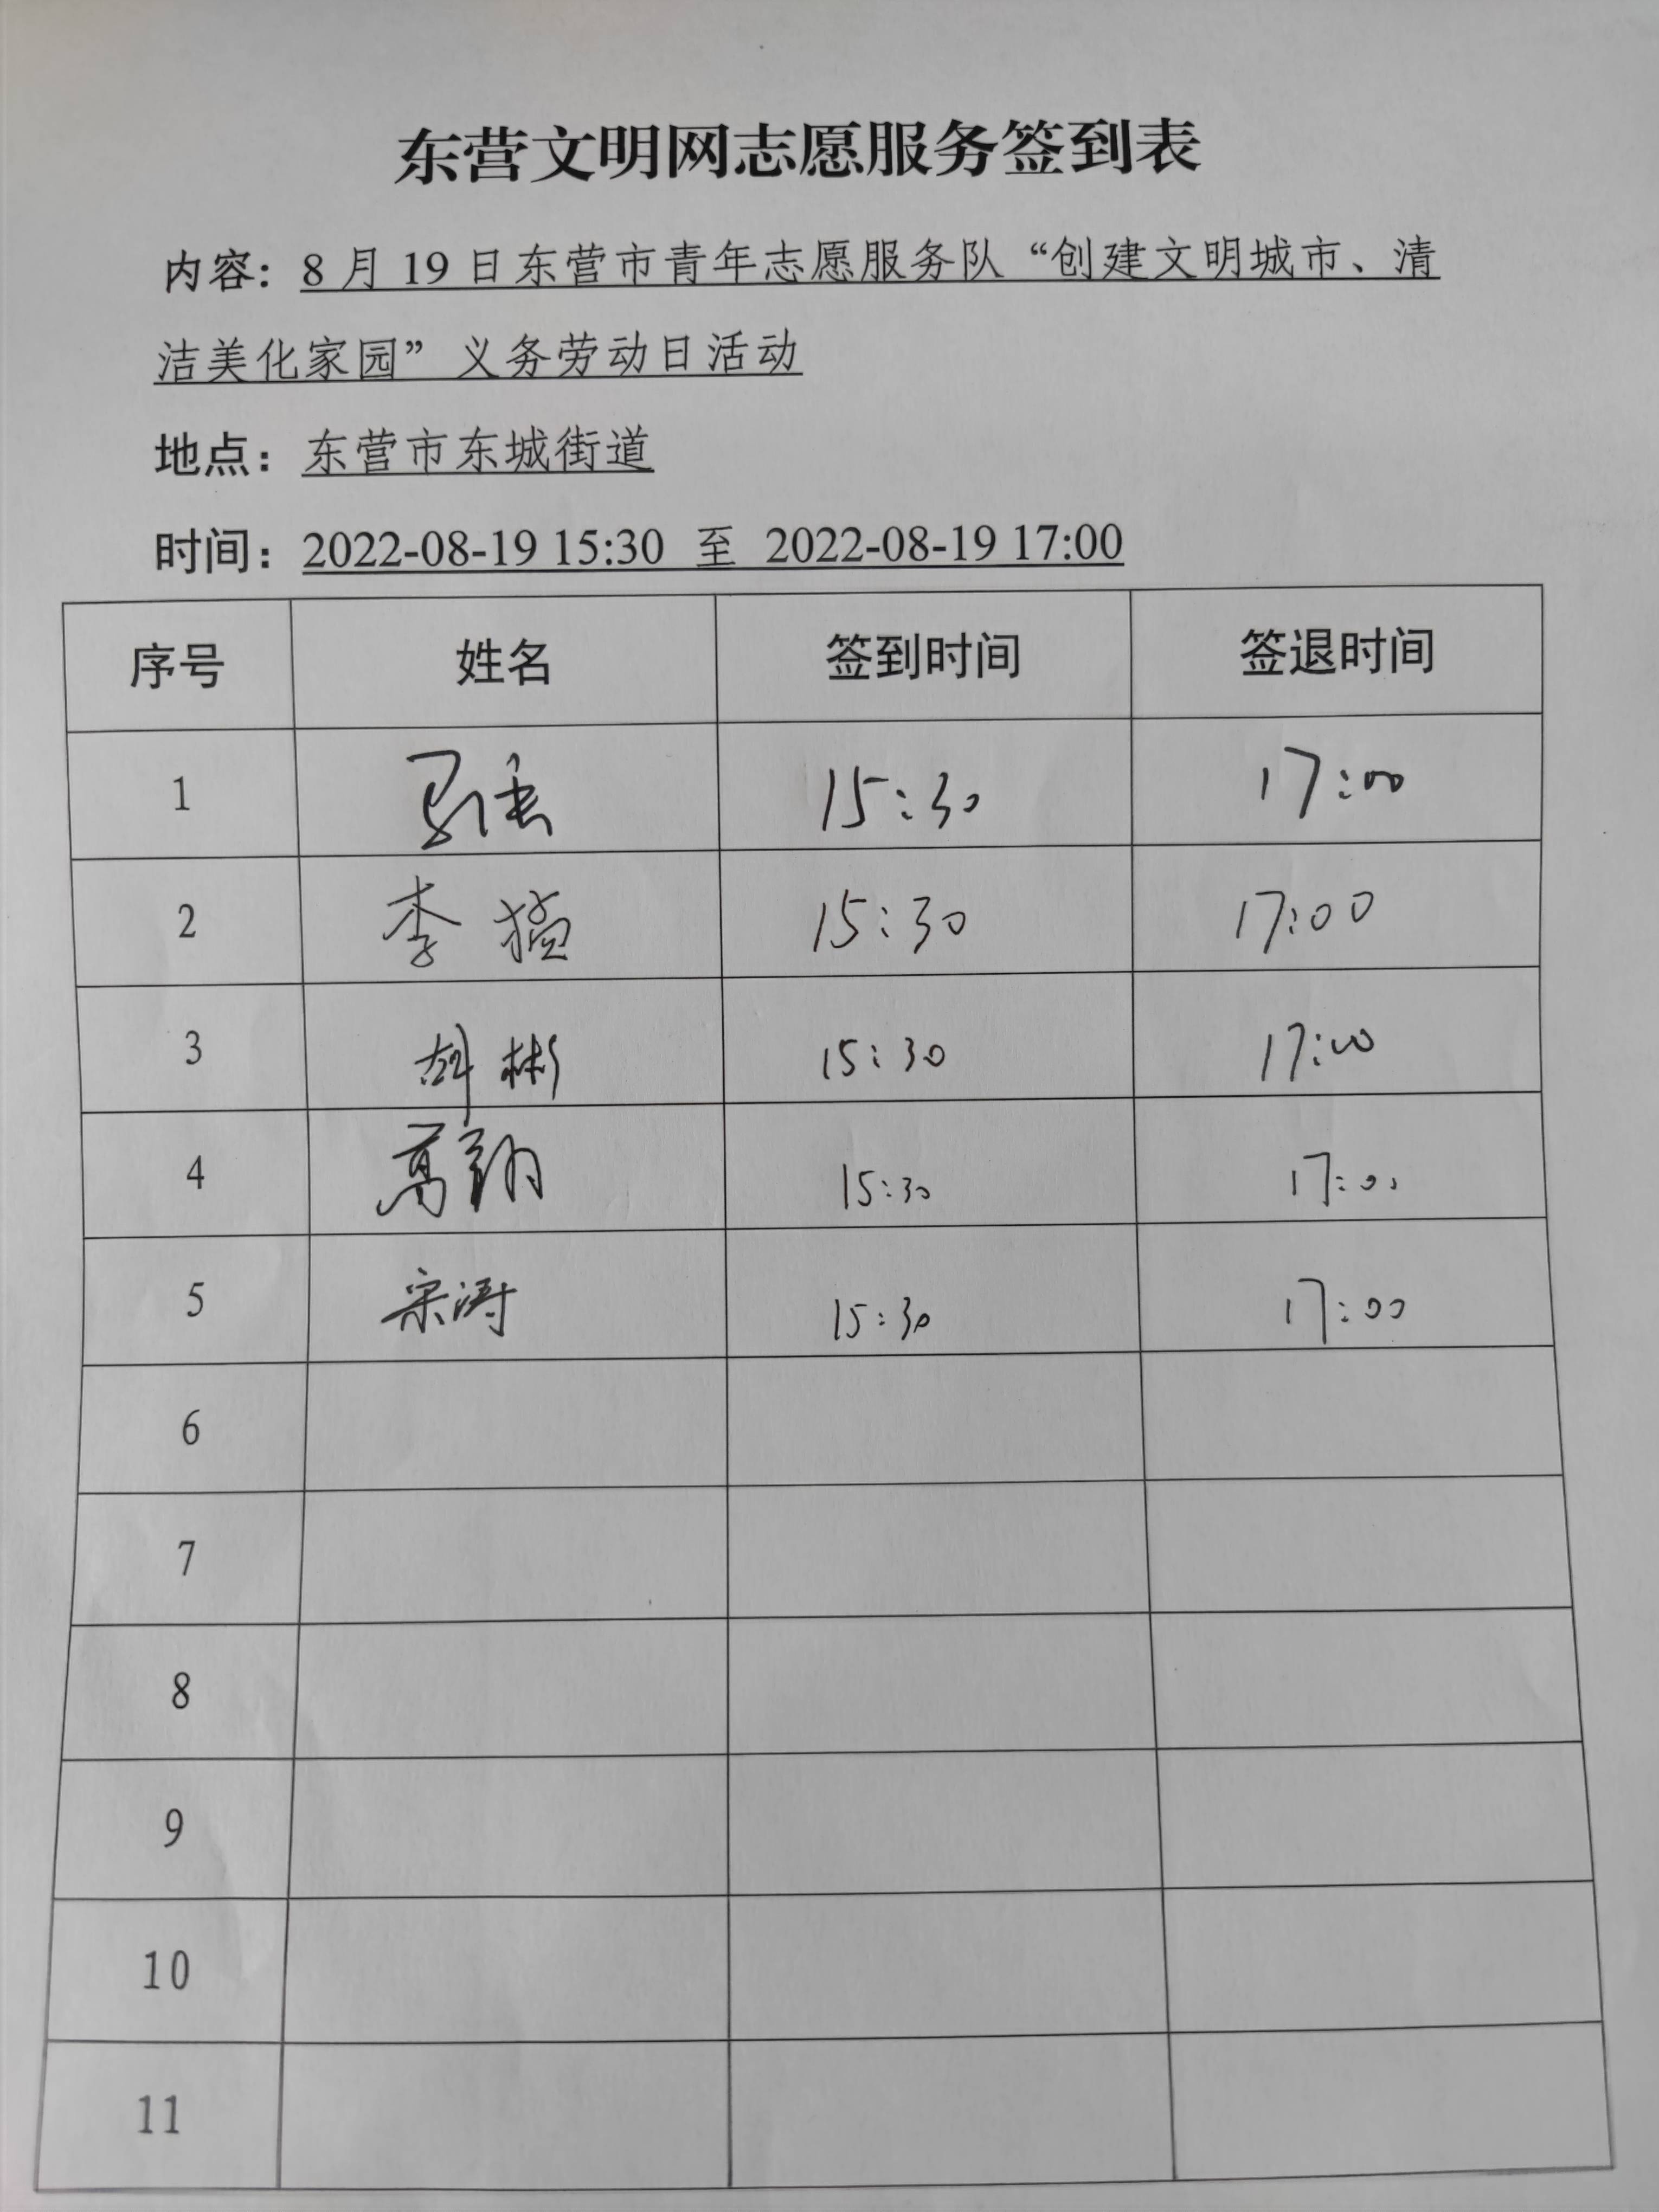 东营文明网志愿服务签到表
内容：8月19日东营市青年志愿服务队“创建文明城市、清
洁美化家园”义务劳动日活动
地点：东营市东城街道
时间：2022-08-19 15:30 至 2022-08-19 17:00
序号 姓名 签到时间 签退时间
1 15:30 17:00
2 李猛 15:30 17:00
3 胡彬 15:30 17:00
4 高翔 15:30 17:00
5 宋涛 15:30 17:00
6
7
8
9
10
11